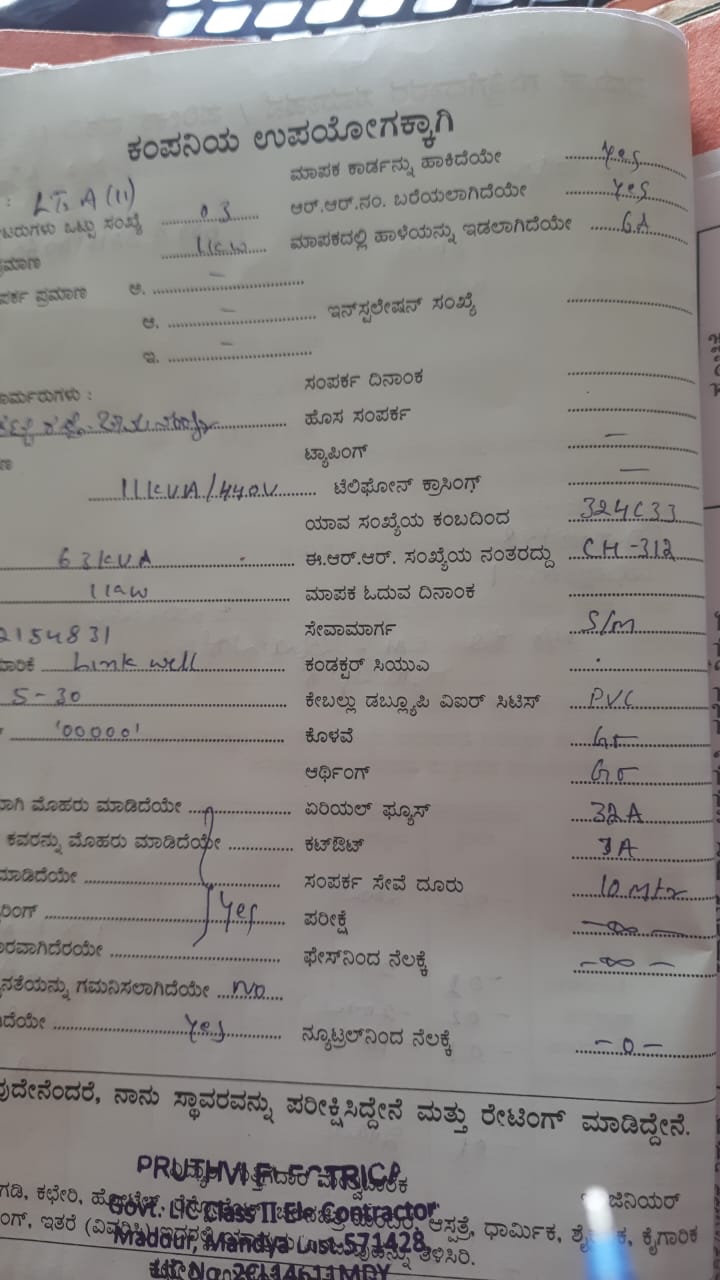 ಕಂಪನಿಯ ಉಪಯೋಗಕ್ಕಾಗಿ
ಮಾಪಕ ಕಾರ್ಡನ್ನು ಹಾಕಿದೆಯೇ Yes
: LT, A (11) ಆರ್.ಆರ್.ನಂ. ಬರೆಯಲಾಗಿದೆಯೇ Yes
ಟರುಗಳು ಒಟ್ಟು ಸಂಖ್ಯೆ 03 ಮಾಪಕದಲ್ಲಿ ಹಾಳೆಯನ್ನು ಇಡಲಾಗಿದೆಯೇ
ಪ್ರಮಾಣ 11kw
ಪರ್ಕ ಪ್ರಮಾಣ ಅ. –
ಆ. – ಇನ್‌ಸ್ಪಲೇಷನ್ ಸಂಖ್ಯೆ
ಇ. –
ಸಂಪರ್ಕ ದಿನಾಂಕ
ಾರ್ಮರುಗಳು : ಹೊಸ ಸಂಪರ್ಕ
ಟ್ಯಾಪಿಂಗ್ –
11KVA/440V ಟೆಲಿಫೋನ್ ಕ್ರಾಸಿಂಗ್ –
ಯಾವ ಸಂಖ್ಯೆಯ ಕಂಬದಿಂದ 324C33
63KVA ಈ.ಆರ್.ಆರ್. ಸಂಖ್ಯೆಯ ನಂತರದ್ದು CH-312
11kw ಮಾಪಕ ಓದುವ ದಿನಾಂಕ
2154831 ಸೇವಾಮಾರ್ಗ S/m
ಾರಿಕೆ Link well ಕಂಡಕ್ಟರ್ ಸಿಯುಎ
5-30 ಕೇಬಲ್ಲು ಡಬ್ಲ್ಯೂಪಿ ವಿಐರ್ ಸಿಟಿಸ್ PVC
'00000' ಕೊಳವೆ
ಆರ್ಥಿಂಗ್
ವಾಗಿ ಮೊಹರು ಮಾಡಿದೆಯೇ ಏರಿಯಲ್ ಫ್ಯೂಸ್ 32A
ಕವರನ್ನು ಮೊಹರು ಮಾಡಿದೆಯೇ ಕಟ್‌ಔಟ್
ಮಾಡಿದೆಯೇ ಸಂಪರ್ಕ ಸೇವೆ ದೂರು 10 mtr
ರಿಂಗ್ Yes ಪರೀಕ್ಷೆ –∞–
ಾರವಾಗಿದೆರಯೇ ಫೇಸ್‌ನಿಂದ ನೆಲಕ್ಕೆ –∞–
ನತೆಯನ್ನು ಗಮನಿಸಲಾಗಿದೆಯೇ No
ದೆಯೇ Yes ನ್ಯೂಟ್ರಲ್‌ನಿಂದ ನೆಲಕ್ಕೆ –0–
ವುದೇನೆಂದರೆ, ನಾನು ಸ್ಥಾವರವನ್ನು ಪರೀಕ್ಷಿಸಿದ್ದೇನೆ ಮತ್ತು ರೇಟಿಂಗ್ ಮಾಡಿದ್ದೇನೆ.
PRUTHVI ELECTRICA
ಜಿನಿಯರ್
ಗಡಿ, ಕಛೇರಿ, ಆಸ್ಪತ್ರೆ, ಧಾರ್ಮಿಕ, ಕೈಗಾರಿಕ
Govt. LIC Class II Ele Contractor
ಂಗ್, ಇತರೆ ತಿಳಿಸಿರಿ.
Maddur, Mandya Dist-571428